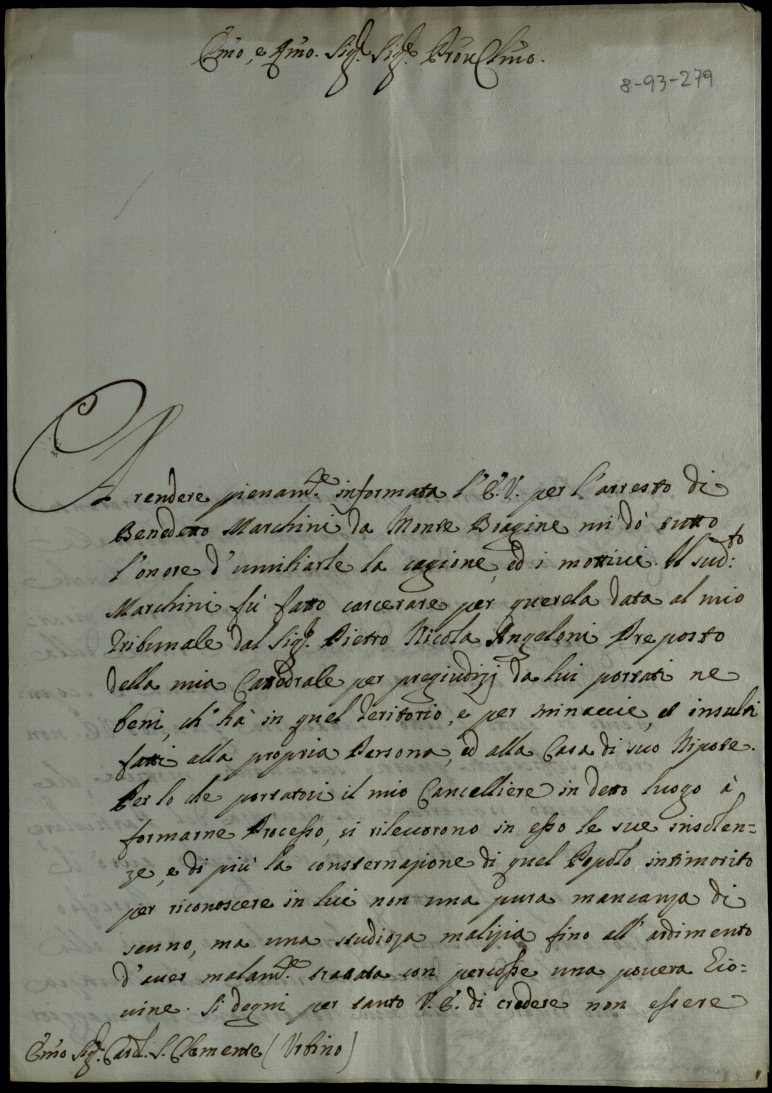 Emo, e Rmo. Sigr. Sigr. Pron Clmo.
8-93-279
A rendere pienamte. informata l'E.V. per l'arresto di
Benedetto Marchini da Monte Biagine mi dò tutto
l'onore d'umiliarle la cagione, ed i mottivi. Il sudto:
Marchini fù fatto carcerare per querela data al mio
Tribunale dal Sigr. Pietro Nicola Angeloni Preposto
della mia Cattedrale per pregiudizj da lui portati ne
beni, ch'hà in quel Territorio, e per minaccie, et insulti
fatti alla propria Persona, ed alla Casa di suo Nipote.
Per lo che portatosi il mio Cancelliere in detto luogo à
formarne Processo, si rilevorono in esso le sue insolen=
ze, e di più la consternazione di quel Popolo intimorito
per riconoscere in lui non una pura mancanza di
senno, ma una studioza malizia fino all'ardimento
d'aver malamte. trattata con percosse una povera Gio=
vine. Si degni per tanto V.E. di credere non essere
Emo Sigr. Card. S. Clemente (Urbino)